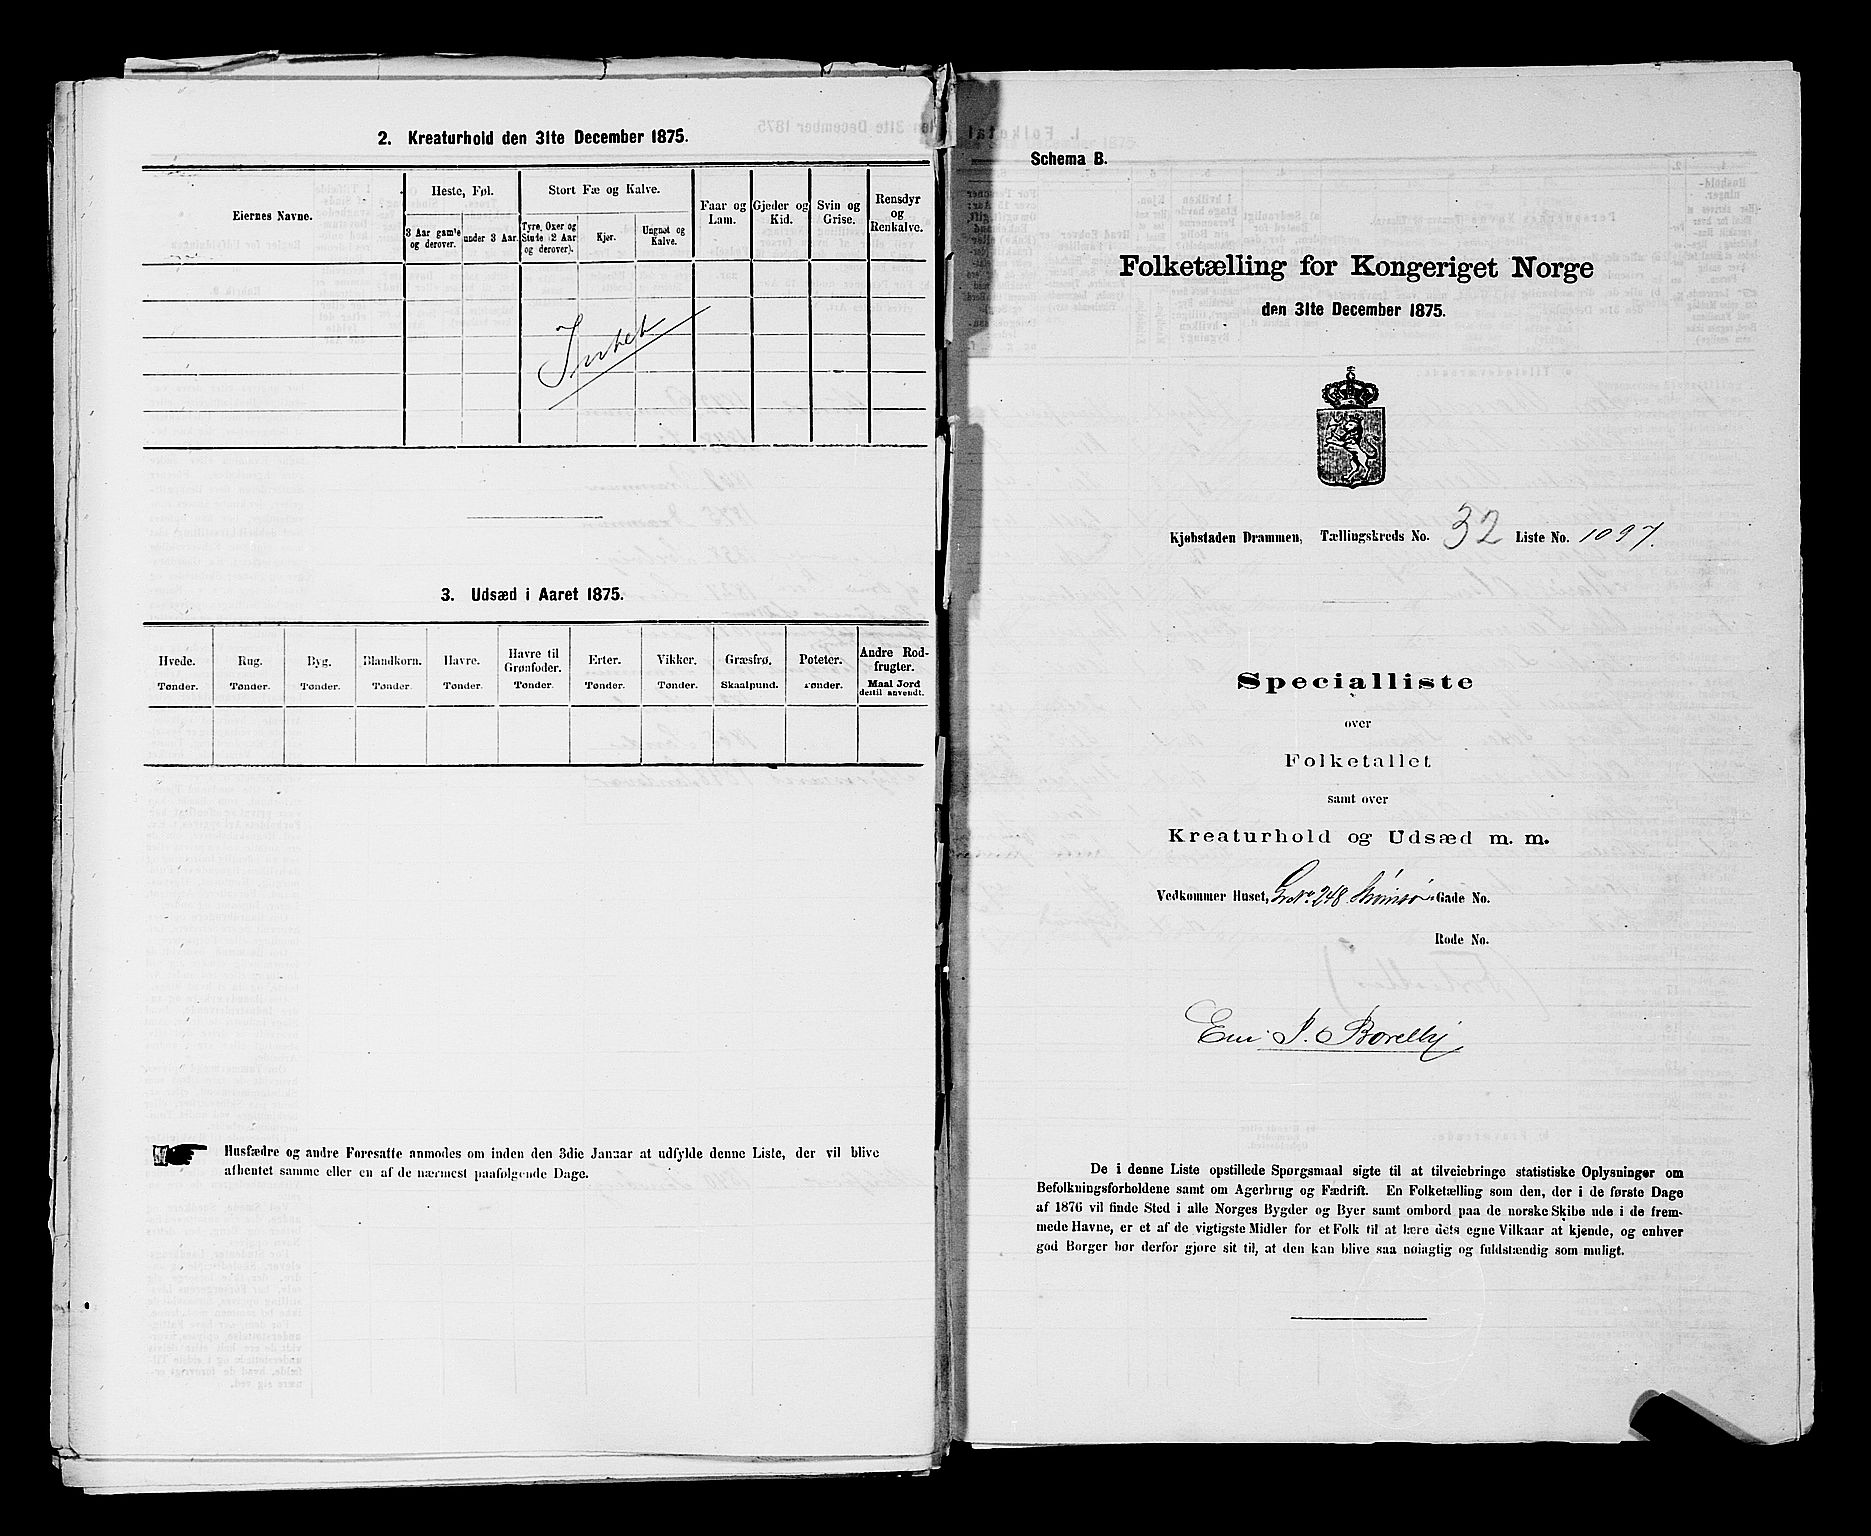 2. Kreaturhold den 31te December 1875.
Eiernes Navne.
Heste, Føl.
3 Aar gamle og derover.
under 3 Aar.
Stort Fæ og Kalve.
Tyre, Oxer og Stude (2 Aar og derover).
Kjør.
Ungnøt og Kalve.
Faar og Lam.
Gjeder og Kid.
Svin og Grise.
Rensdyr og Renkalve.
Intet
3. Udsæd i Aaret 1875.
Hvede. Tønder.
Rug. Tønder.
Byg. Tønder.
Blandkorn. Tønder.
Havre. Tønder.
Havre til Grønfoder. Tønder.
Erter. Tønder.
Vikker. Tønder.
Græsfrø. Skaalpund.
Poteter. Tønder.
Andre Rodfrugter. Maal Jord dertil anvendt.
Husfædre og andre Foresatte anmodes om inden den 3die Januar at udfylde denne Liste, der vil blive
afhentet samme eller en af de nærmest paafølgende Dage.
Schema B.
Folketælling for Kongeriget Norge
den 31te December 1875.
Kjøbstaden Drammen, Tællingskreds No. 32 Liste No. 1097.
Specialliste
over
Folketallet
samt over
Kreaturhold og Udsæd m. m.
Vedkommer Huset, G. No. 248 Strømsø Gade No.
Rode No.
J. Borelly
De i denne Liste opstillede Spørgsmaal sigte til at tilveiebringe statistiske Oplysninger om
Befolkningsforholdene samt om Agerbrug og Fædrift. En Folketælling som den, der i de første Dage
af 1876 vil finde Sted i alle Norges Bygder og Byer samt ombord paa de norske Skibe ude i de frem-
mede Havne, er et af de vigtigste Midler for et Folk til at lære dets egne Vilkaar at kjende, og enhver
god Borger bør derfor gjøre sit til, at den kan blive saa nøiagtig og fuldstændig som muligt.